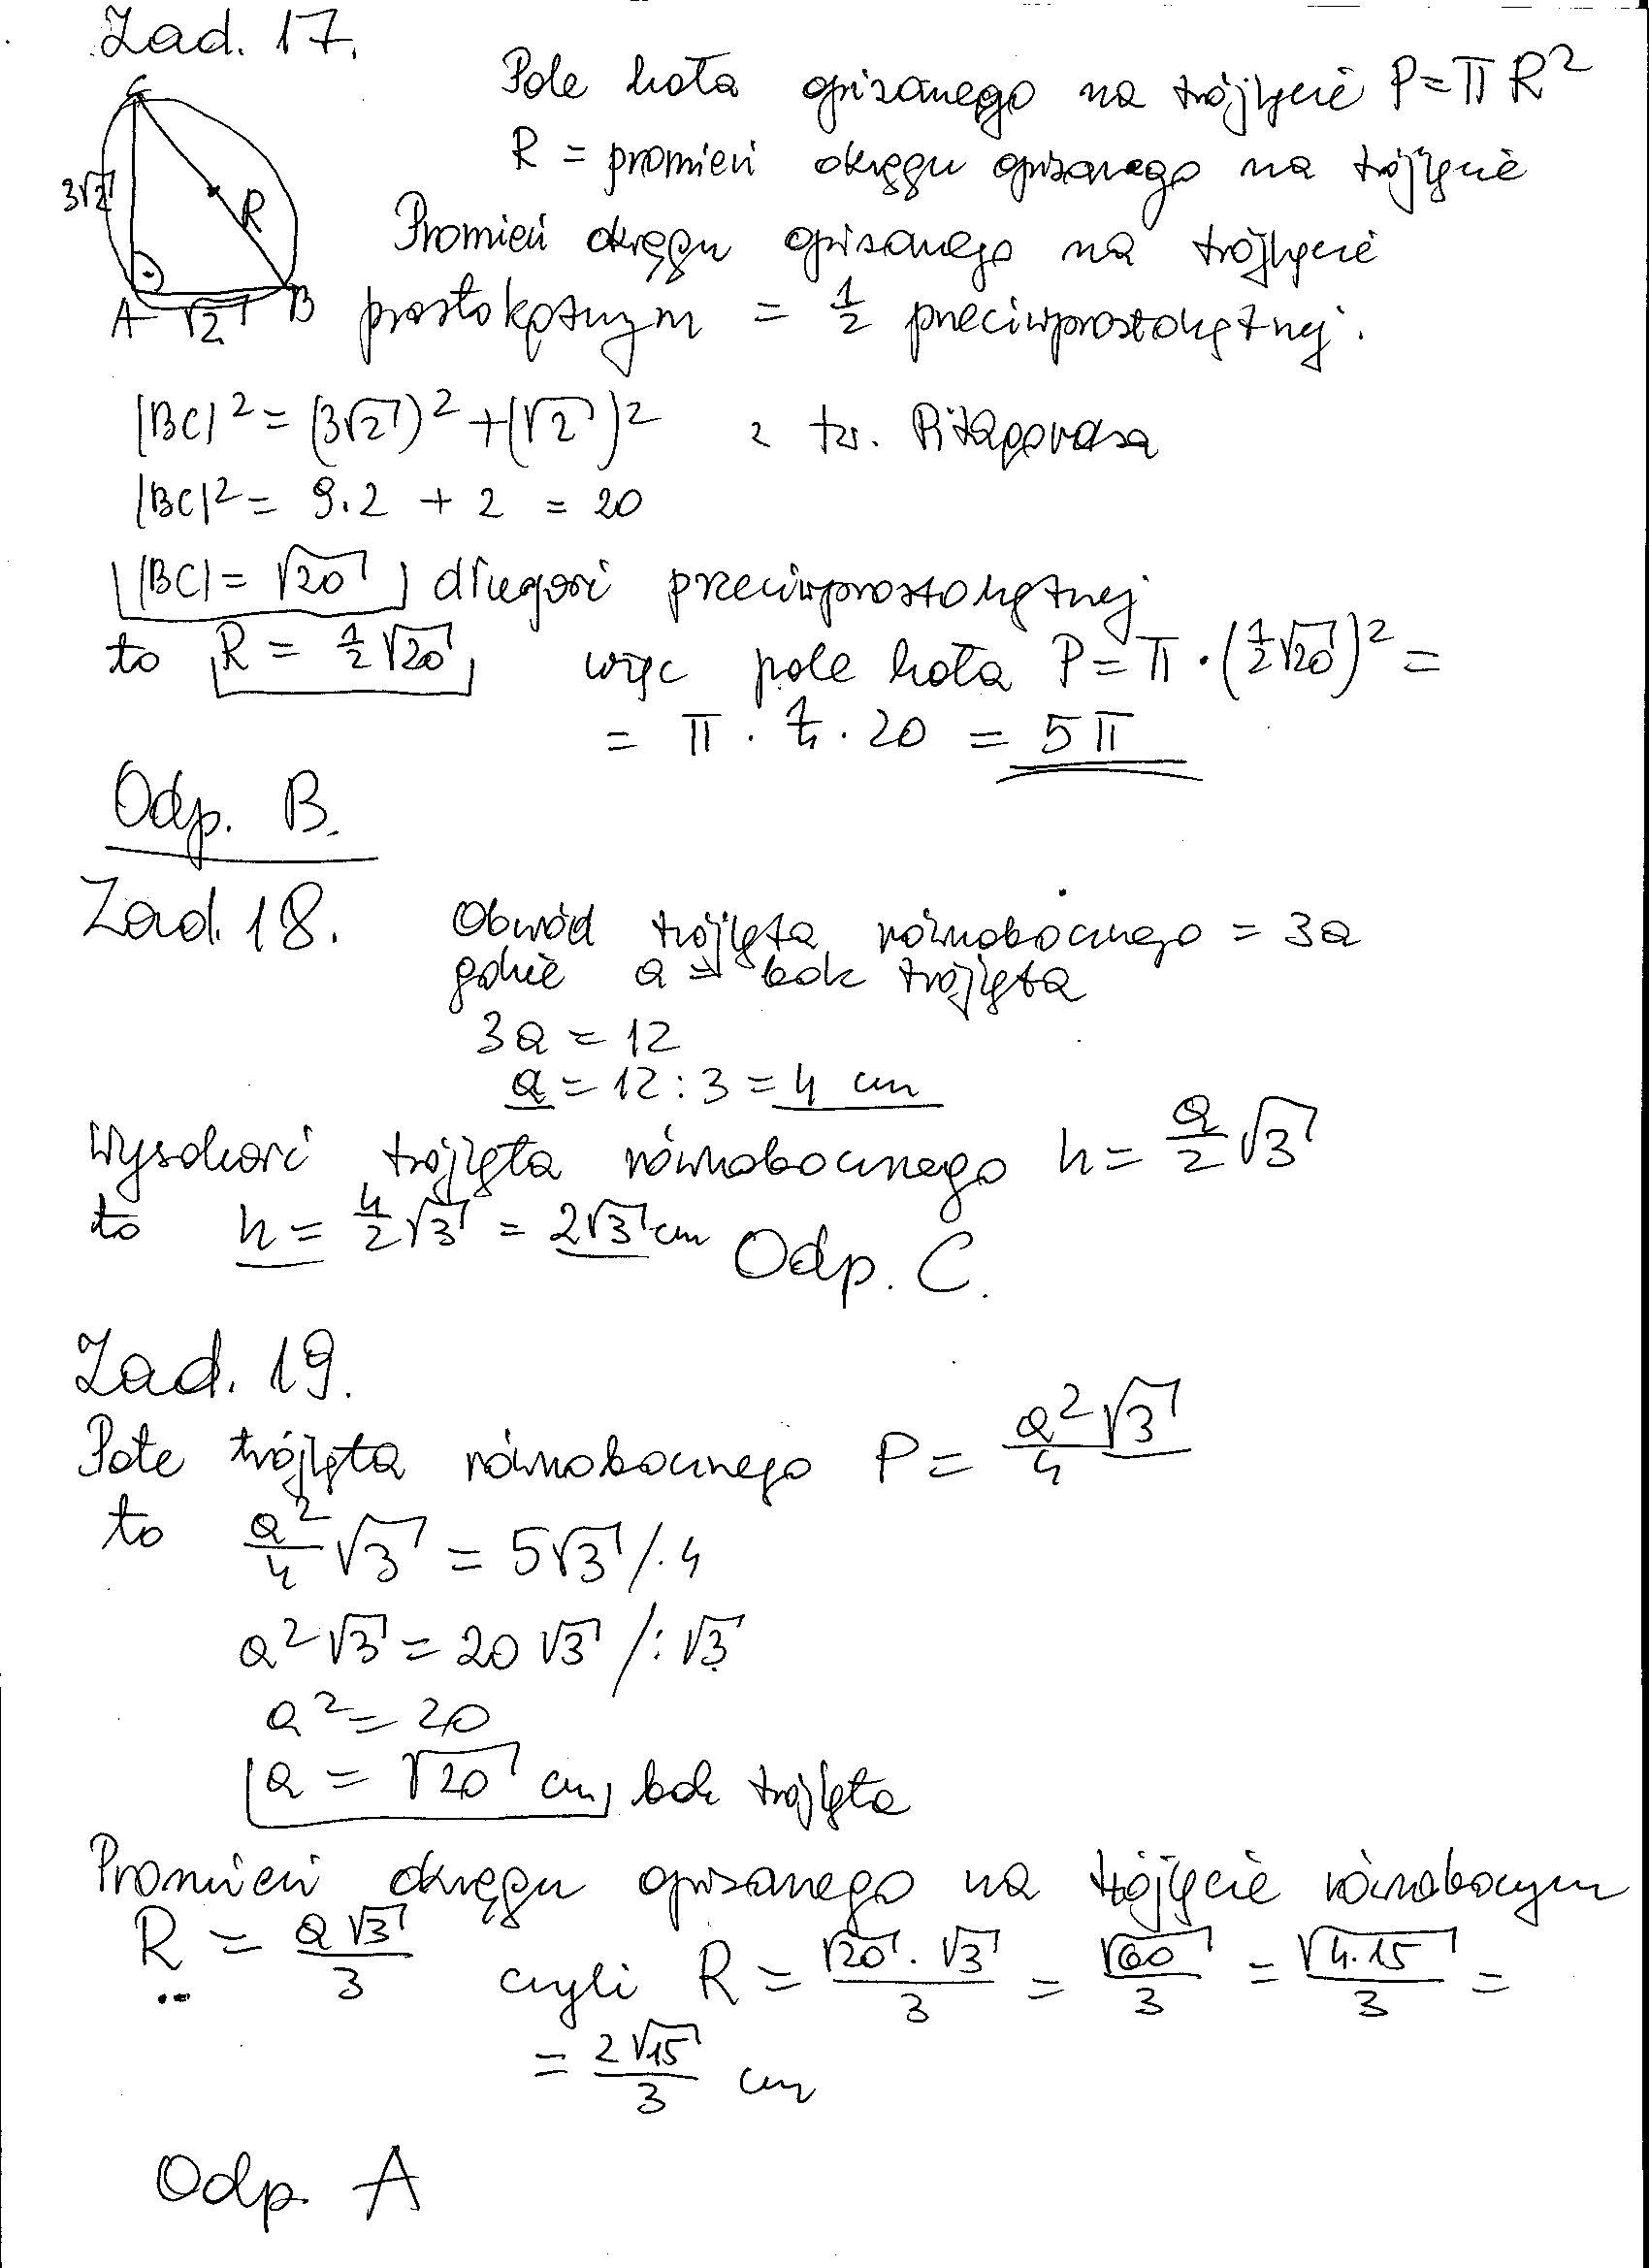 Zad. 17.
Pole koła opisanego na trójkącie P = π R²
R = promień okręgu opisanego na trójkącie
C
3√2
R
A √2 B
Promień okręgu opisanego na trójkącie
prostokątnym = 1/2 przeciwprostokątnej.
|BC|² = (3√2)² + (√2)² z tw. Pitagorasa
|BC|² = 9·2 + 2 = 20
|BC| = √20 długość przeciwprostokątnej
to R = 1/2 √20 więc pole koła P = π · (1/2 √20)² =
= π · 1/4 · 20 = 5π
Odp. B.
Zad. 18. Obwód trójkąta równobocznego = 3a
gdzie a → bok trójkąta
3a = 12
a = 12 : 3 = 4 cm
Wysokość trójkąta równobocznego h = a/2 √3
to h = 4/2 √3 = 2√3 cm Odp. C.
Zad. 19.
Pole trójkąta równobocznego P = a²√3/4
to a²/4 √3 = 5√3 /·4
a²√3 = 20√3 /:√3
a² = 20
a = √20 cm bok trójkąta
Promień okręgu opisanego na trójkącie równobocznym
R = a√3/3 czyli R = √20·√3/3 = √60/3 = √4·15/3 =
= 2√15/3 cm
Odp. A